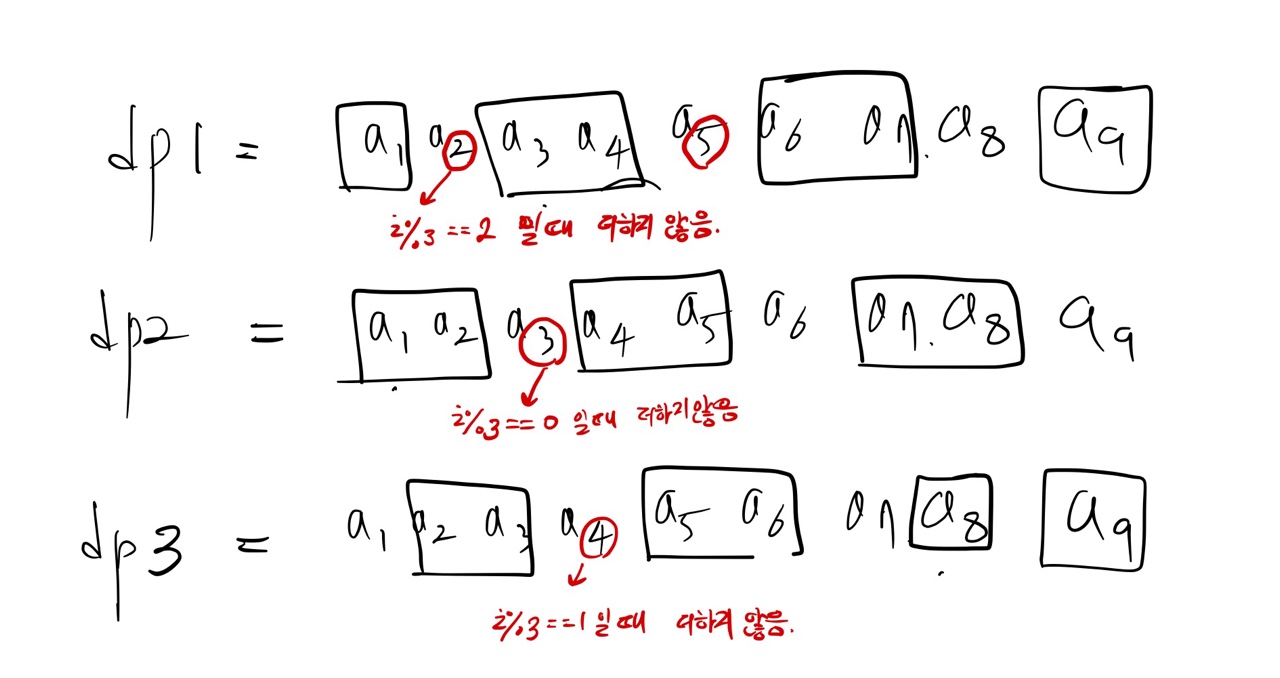 dp1 = a1 a2 a3 a4 a5 a6 a7 . a8 a9
i%3 == 2 일때 더하지 않음.
dp2 = a1 a2 a3 a4 a5 a6 a7 . a8 a9
i%3 == 0 일때 더하지않음
dp3 = a1 a2 a3 a4 a5 a6 a7 a8 a9
i%3 == 1 일때 더하지 않음.